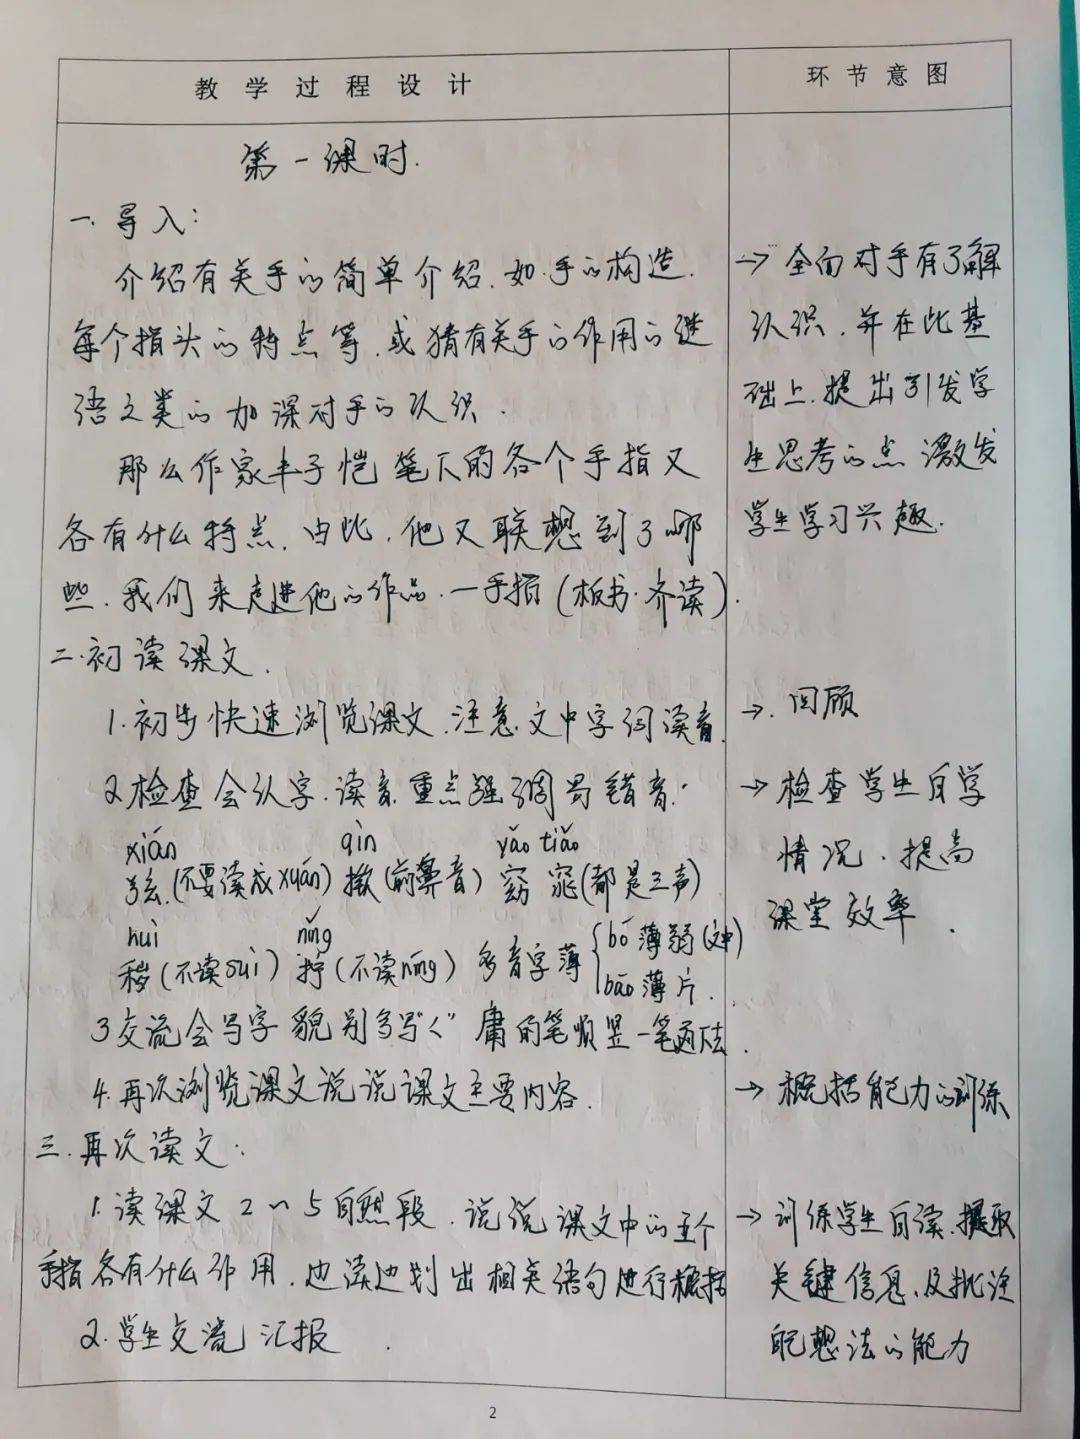 教学过程设计
环节意图
第一课时.
一.导入:
介绍有关手的简单介绍.如.手的构造.
每个指头的特点等.或猜有关手的作用的谜
语之类的加深对手的认识.
那么作家丰子恺笔下的各个手指又
各有什么特点.由此.他又联想到了哪
些.我们来走进他的作品.一手指(板书.齐读).
二.初读课文.
1.初步快速浏览课文.注意文中字词读音.
2.检查会认字.读音.重点强调易错音.
xián qìn yǎo tiǎo
弦.(不要读成xuán) 揿(前鼻音) 窈窕(都是三声)
huì nǐng
秽(不读suì) 拧(不读níng) 多音字薄{bó薄弱(文中)
báo薄片.
3交流会写字 貌别多写"く" 庸的笔顺竖一笔
4.再次浏览课文说说课文主要内容.
三.再次读文.
1.读课文2~5自然段.说说课文中的五个
手指各有什么作用.边读边划出相关语句进行概括
2.学生交流汇报.
→全面对手有了解
认识.并在此基
础上.提出引发学
生思考的点 激发
学生学习兴趣.
→.回顾
→检查学生自学
情况.提高
课堂效率.
→概括能力的训练
→训练学生自读.提取
关键信息.及批注
自己想法的能力
2